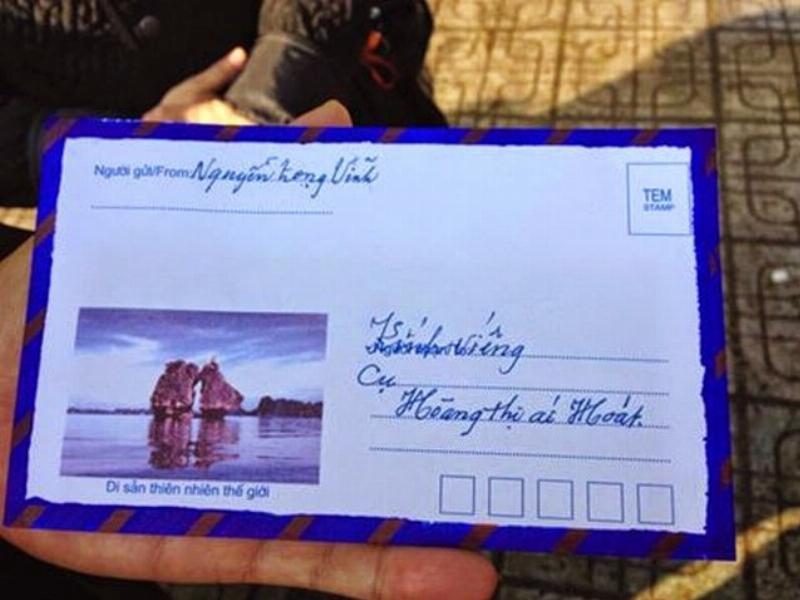 Người gửi/From: Nguyễn Trọng Vĩnh
TEM
STAMP
Kính viếng
Cụ
Hoàng thị ái Hoát.
Di sản thiên nhiên thế giới